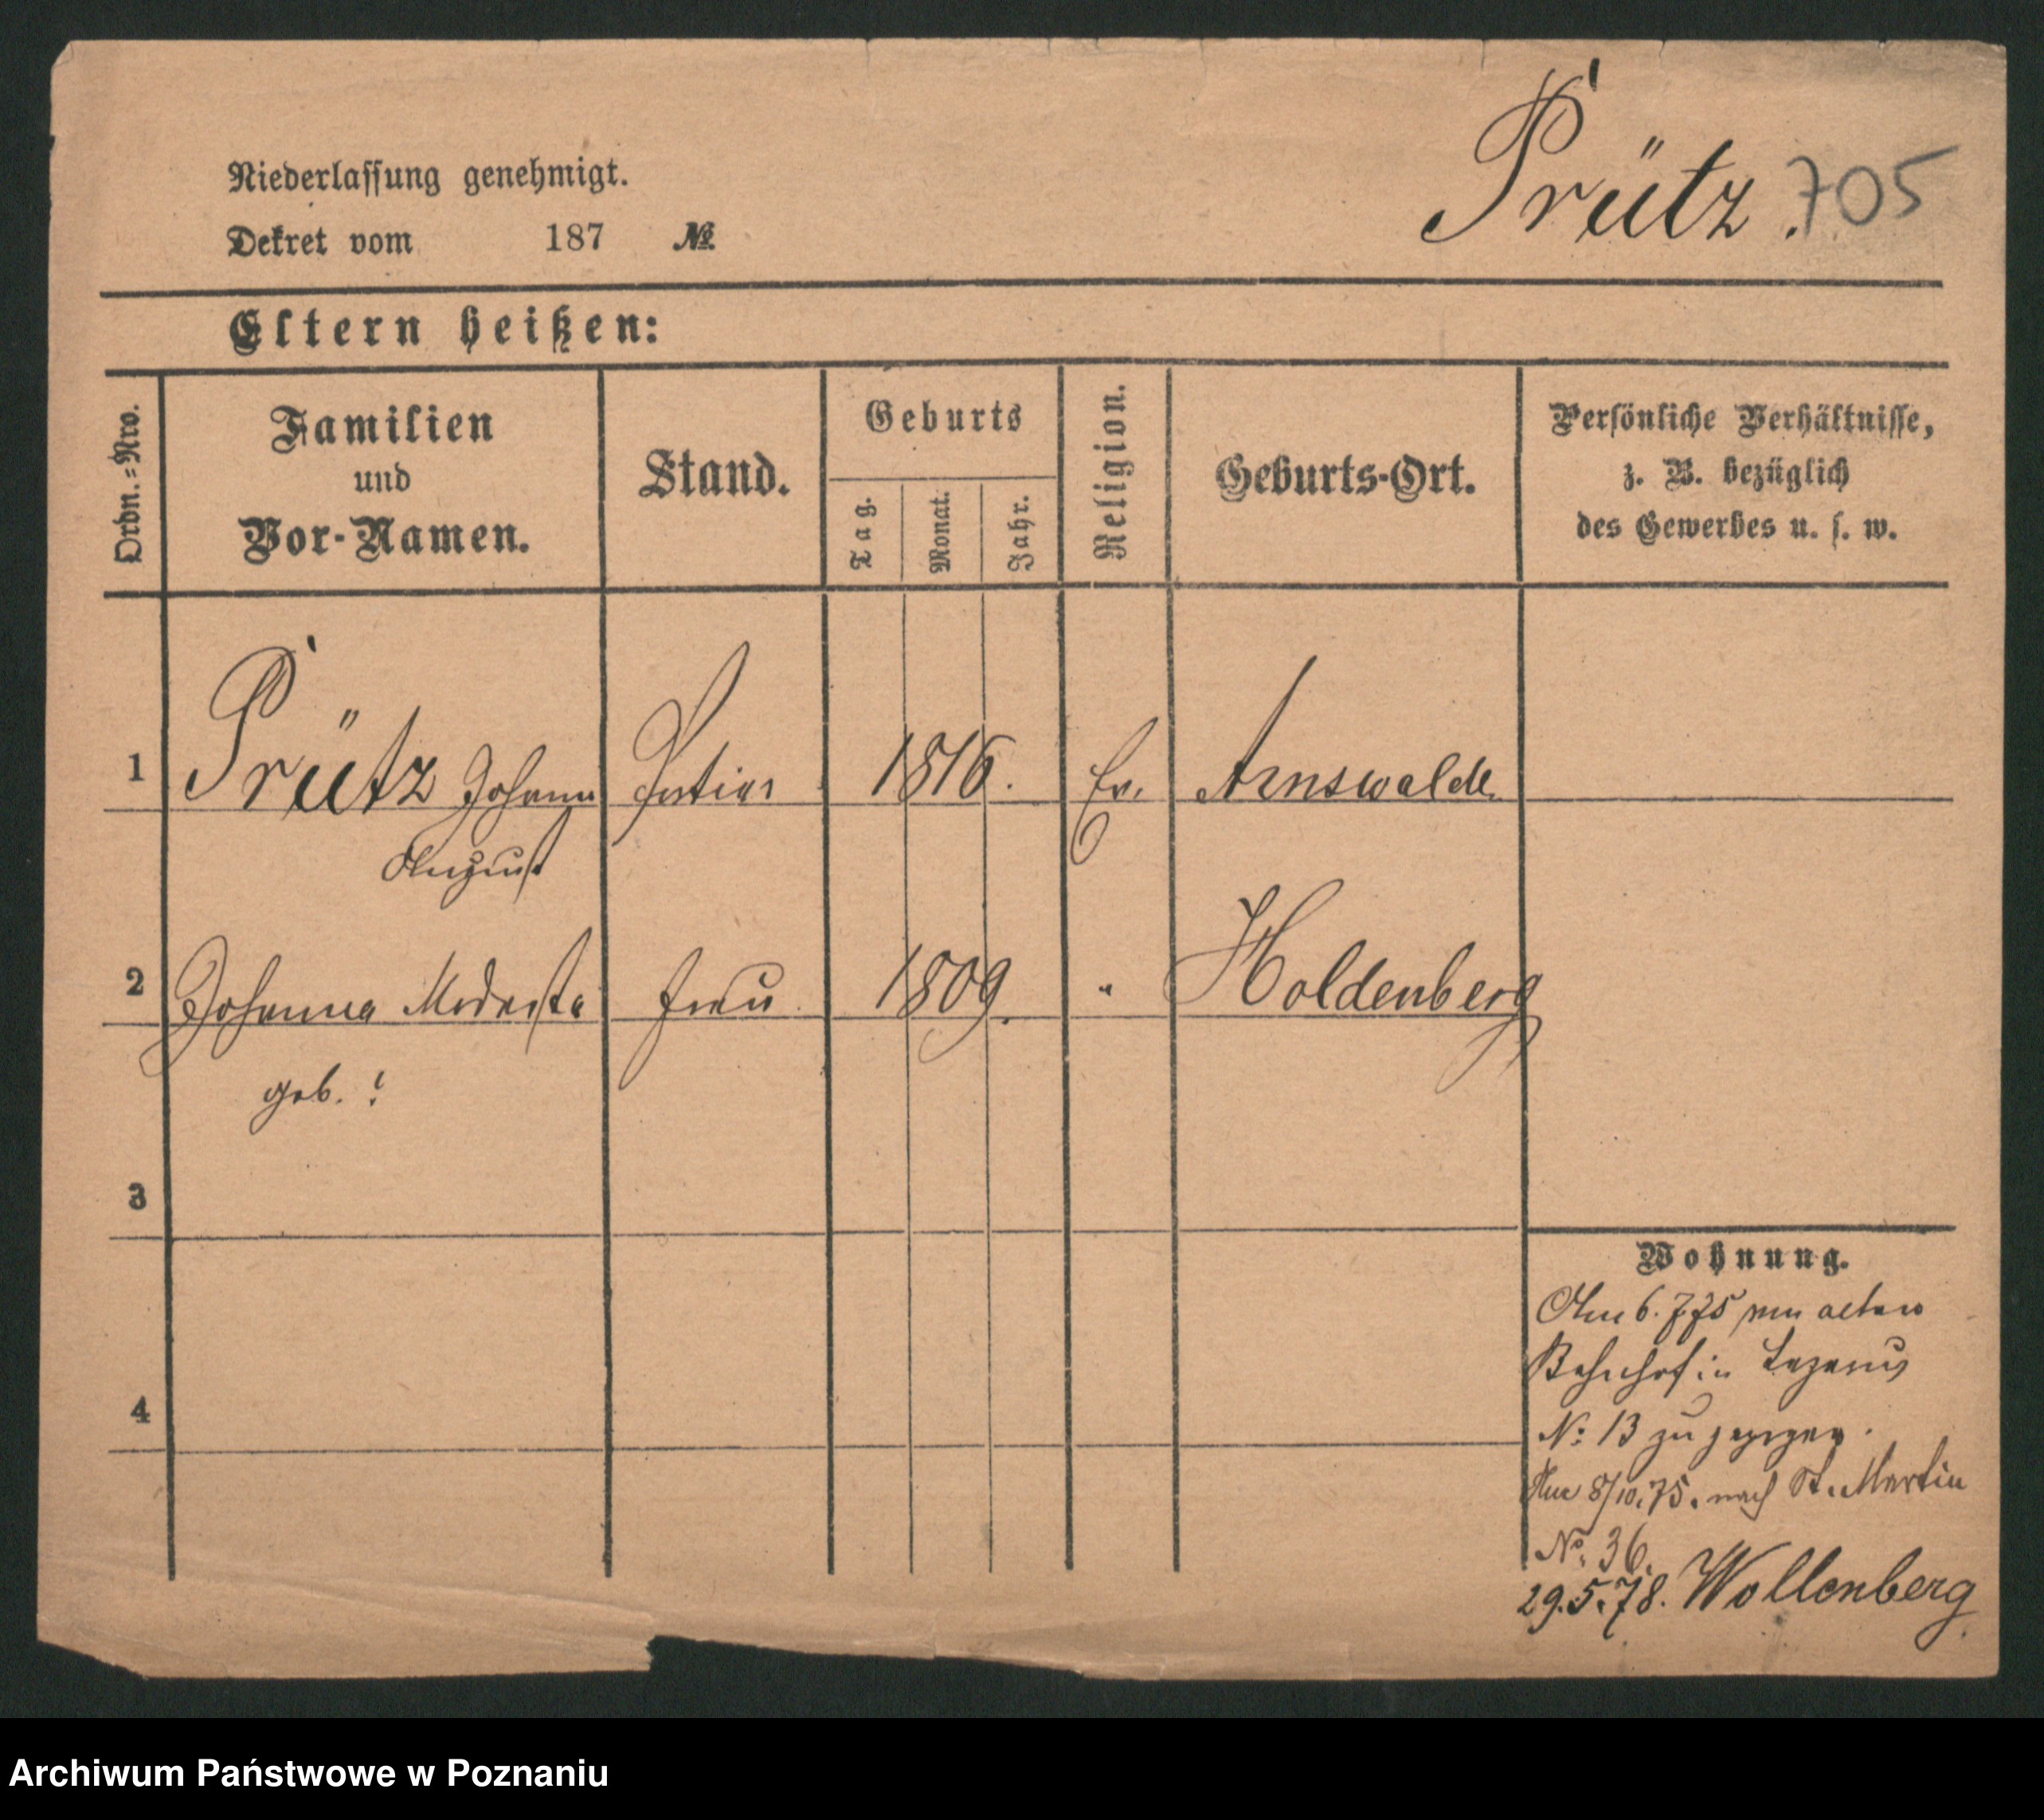 Prütz. 705
Niederlassung genehmigt.
Dekret vom 187 №
Eltern heißen:
Ordn.=Nro.
Familien
und
Vor-Namen.
Stand.
Geburts
Tag.
Monat.
Jahr.
Religion.
Geburts-Ort.
Persönliche Verhältnisse,
z. B. bezüglich
des Gewerbes u. s. w.
1 Prütz Johann 1816. Ev. Arnswalde
August
2 Johanna Modesta Frau 1809. " Holdenberg
geb. ?
3
4
Wohnung.
Am 6. 7 75 alten
Bahnhof in Lazarus
No 13 zu gezogen.
Am 8/10.75. nach St. Martin
No. 36.
29.5.78. Wollenberg
Archiwum Państwowe w Poznaniu